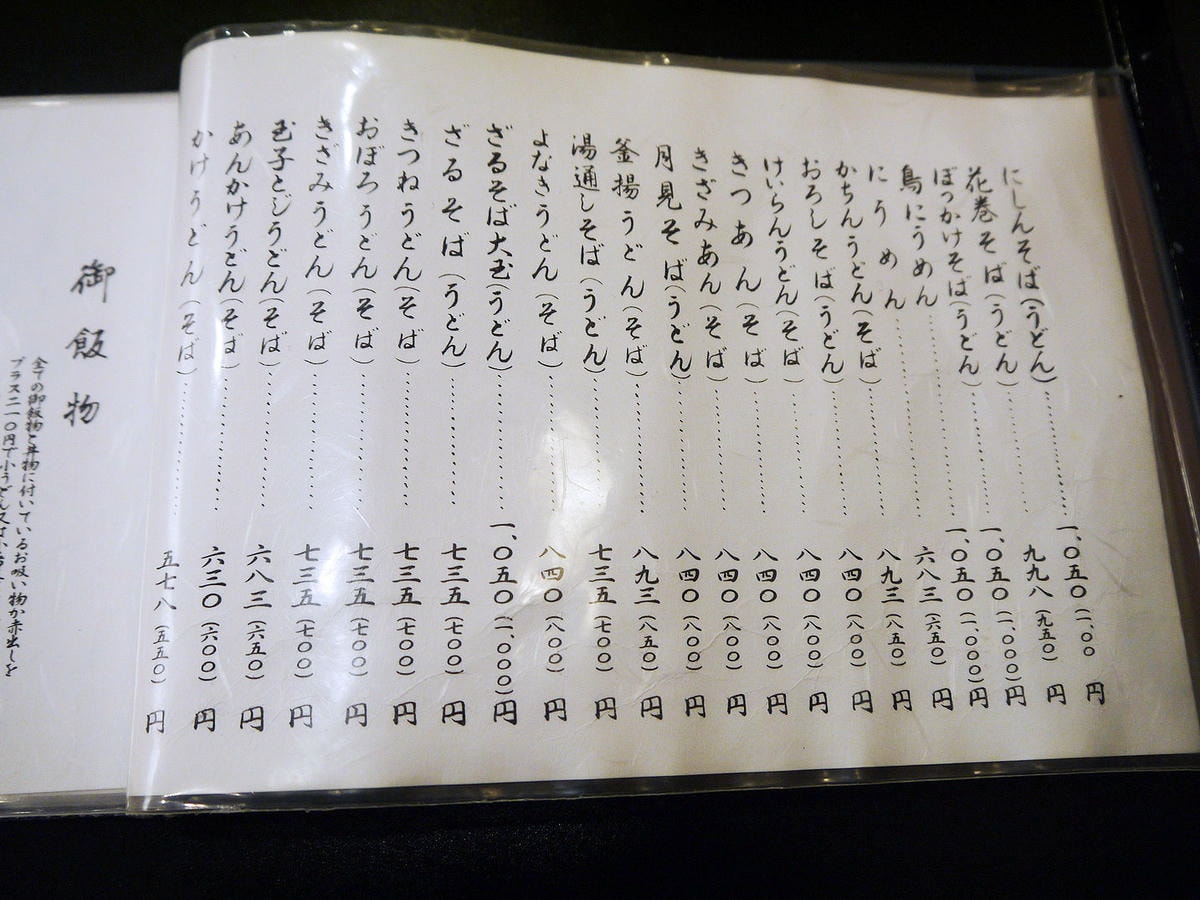 にしんそば(うどん)……………一、〇五〇(一、〇〇 円
花巻そば(うどん)……………九九八(九五〇)円
ぼっかけそば(うどん)……………一、〇五〇(一、〇〇〇)円
鳥にうめん……………一、〇五〇(一、〇〇〇)円
にうめん……………六八三(六五〇)円
かちんうどん(そば)……………八九三(八五〇)円
おろしそば(うどん)……………八四〇(八〇〇)円
けいらんうどん(そば)……………八四〇(八〇〇)円
きつあん(そば)……………八四〇(八〇〇)円
きざみあん(そば)……………八四〇(八〇〇)円
月見そば(うどん)……………八四〇(八〇〇)円
釜揚うどん(そば)……………八九三(八五〇)円
湯通しそば(うどん)……………七三五(七〇〇)円
よなきうどん(そば)……………八四〇(八〇〇)円
ざるそば大玉(うどん)……………一、〇五〇(一、〇〇〇)円
ざるそば(うどん)……………七三五(七〇〇)円
きつねうどん(そば)……………七三五(七〇〇)円
おぼろうどん(そば)……………七三五(七〇〇)円
きざみうどん(そば)……………七三五(七〇〇)円
玉子とじうどん(そば)……………六八三(六五〇)円
あんかけうどん(そば)……………六三〇(六〇〇)円
かけうどん(そば)……………五七八(五五〇)円
御飯物
全ての御飯物と丼物に付いているお吸い物か赤出しを
プラス二一〇円で小うどん又は